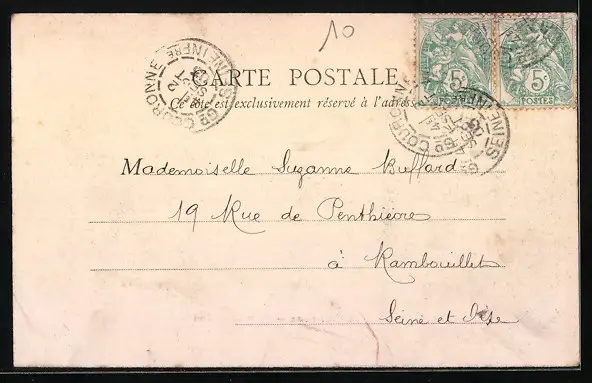 10
5c 5c
POSTES POSTES
CARTE POSTALE
Ce côté est exclusivement réservé à l'adresse
Gd COURONNE
SEINE INFRE
Gd COURONNE
SEINE INFRE
Mademoiselle Suzanne Buffard
19 Rue de Penthièvre
à Rambouillet
Seine et Oise